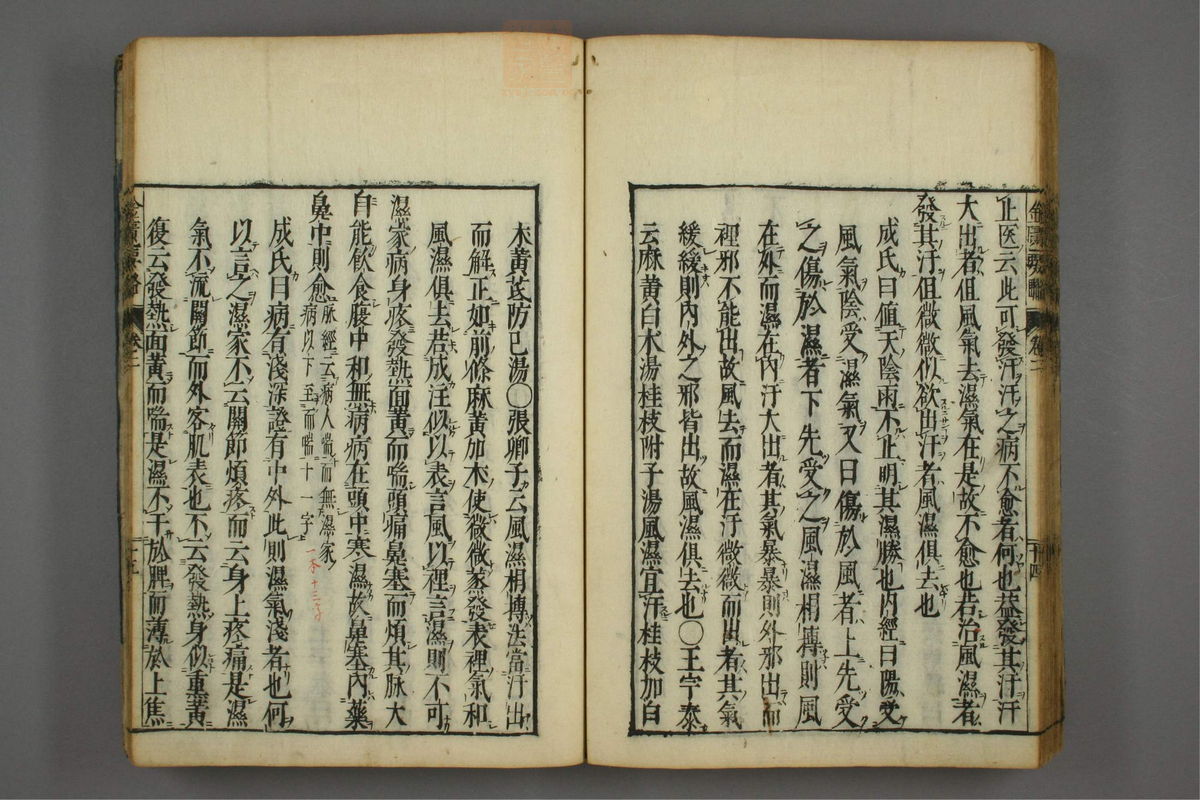 止医云此可發汗汗之病不愈者何也蓋發其汗汗
大出者但風氣去濕氣在是故不愈也若治風濕者
發其汗但微微似欲出汗者風濕俱去也
成氏曰値天陰雨不止明其濕勝也内經曰陽受
風氣陰受濕氣又曰傷於風者上先受
之傷於濕者下先受之風濕相搏則風
在外而濕在内汗大出者其氣暴暴則外邪出而
裡邪不能出故風去而濕在汗微微而出者其氣
緩緩則内外之邪皆出故風濕俱去也〇王宇泰
云麻黄白朮湯桂枝附子湯風濕宜汗桂枝加白
卷二
十四
朮黄芪防已湯〇張卿子云風濕相摶法當汗出
而解正如前條麻黄加朮使微微蒸發表裡氣和
風濕俱去若成注似以表言風以裡言濕則不可
濕家病身疼發熱面黄而喘頭痛鼻塞而煩其脉大
自能飲食腹中和無病病在頭中寒濕故鼻塞内藥
鼻中則愈 脉經云病人喘而無濕家病以下至而喘十一字
一本十三字
成氏曰病有淺深證有中外此則濕氣淺者也何
以言之濕家不云關節煩疼而云身上疼痛是濕
氣不流關節而外客肌表也不云發熱身似熏黄
復云發熱面黄而喘是濕不干於脾而薄於上焦
卷二
十五